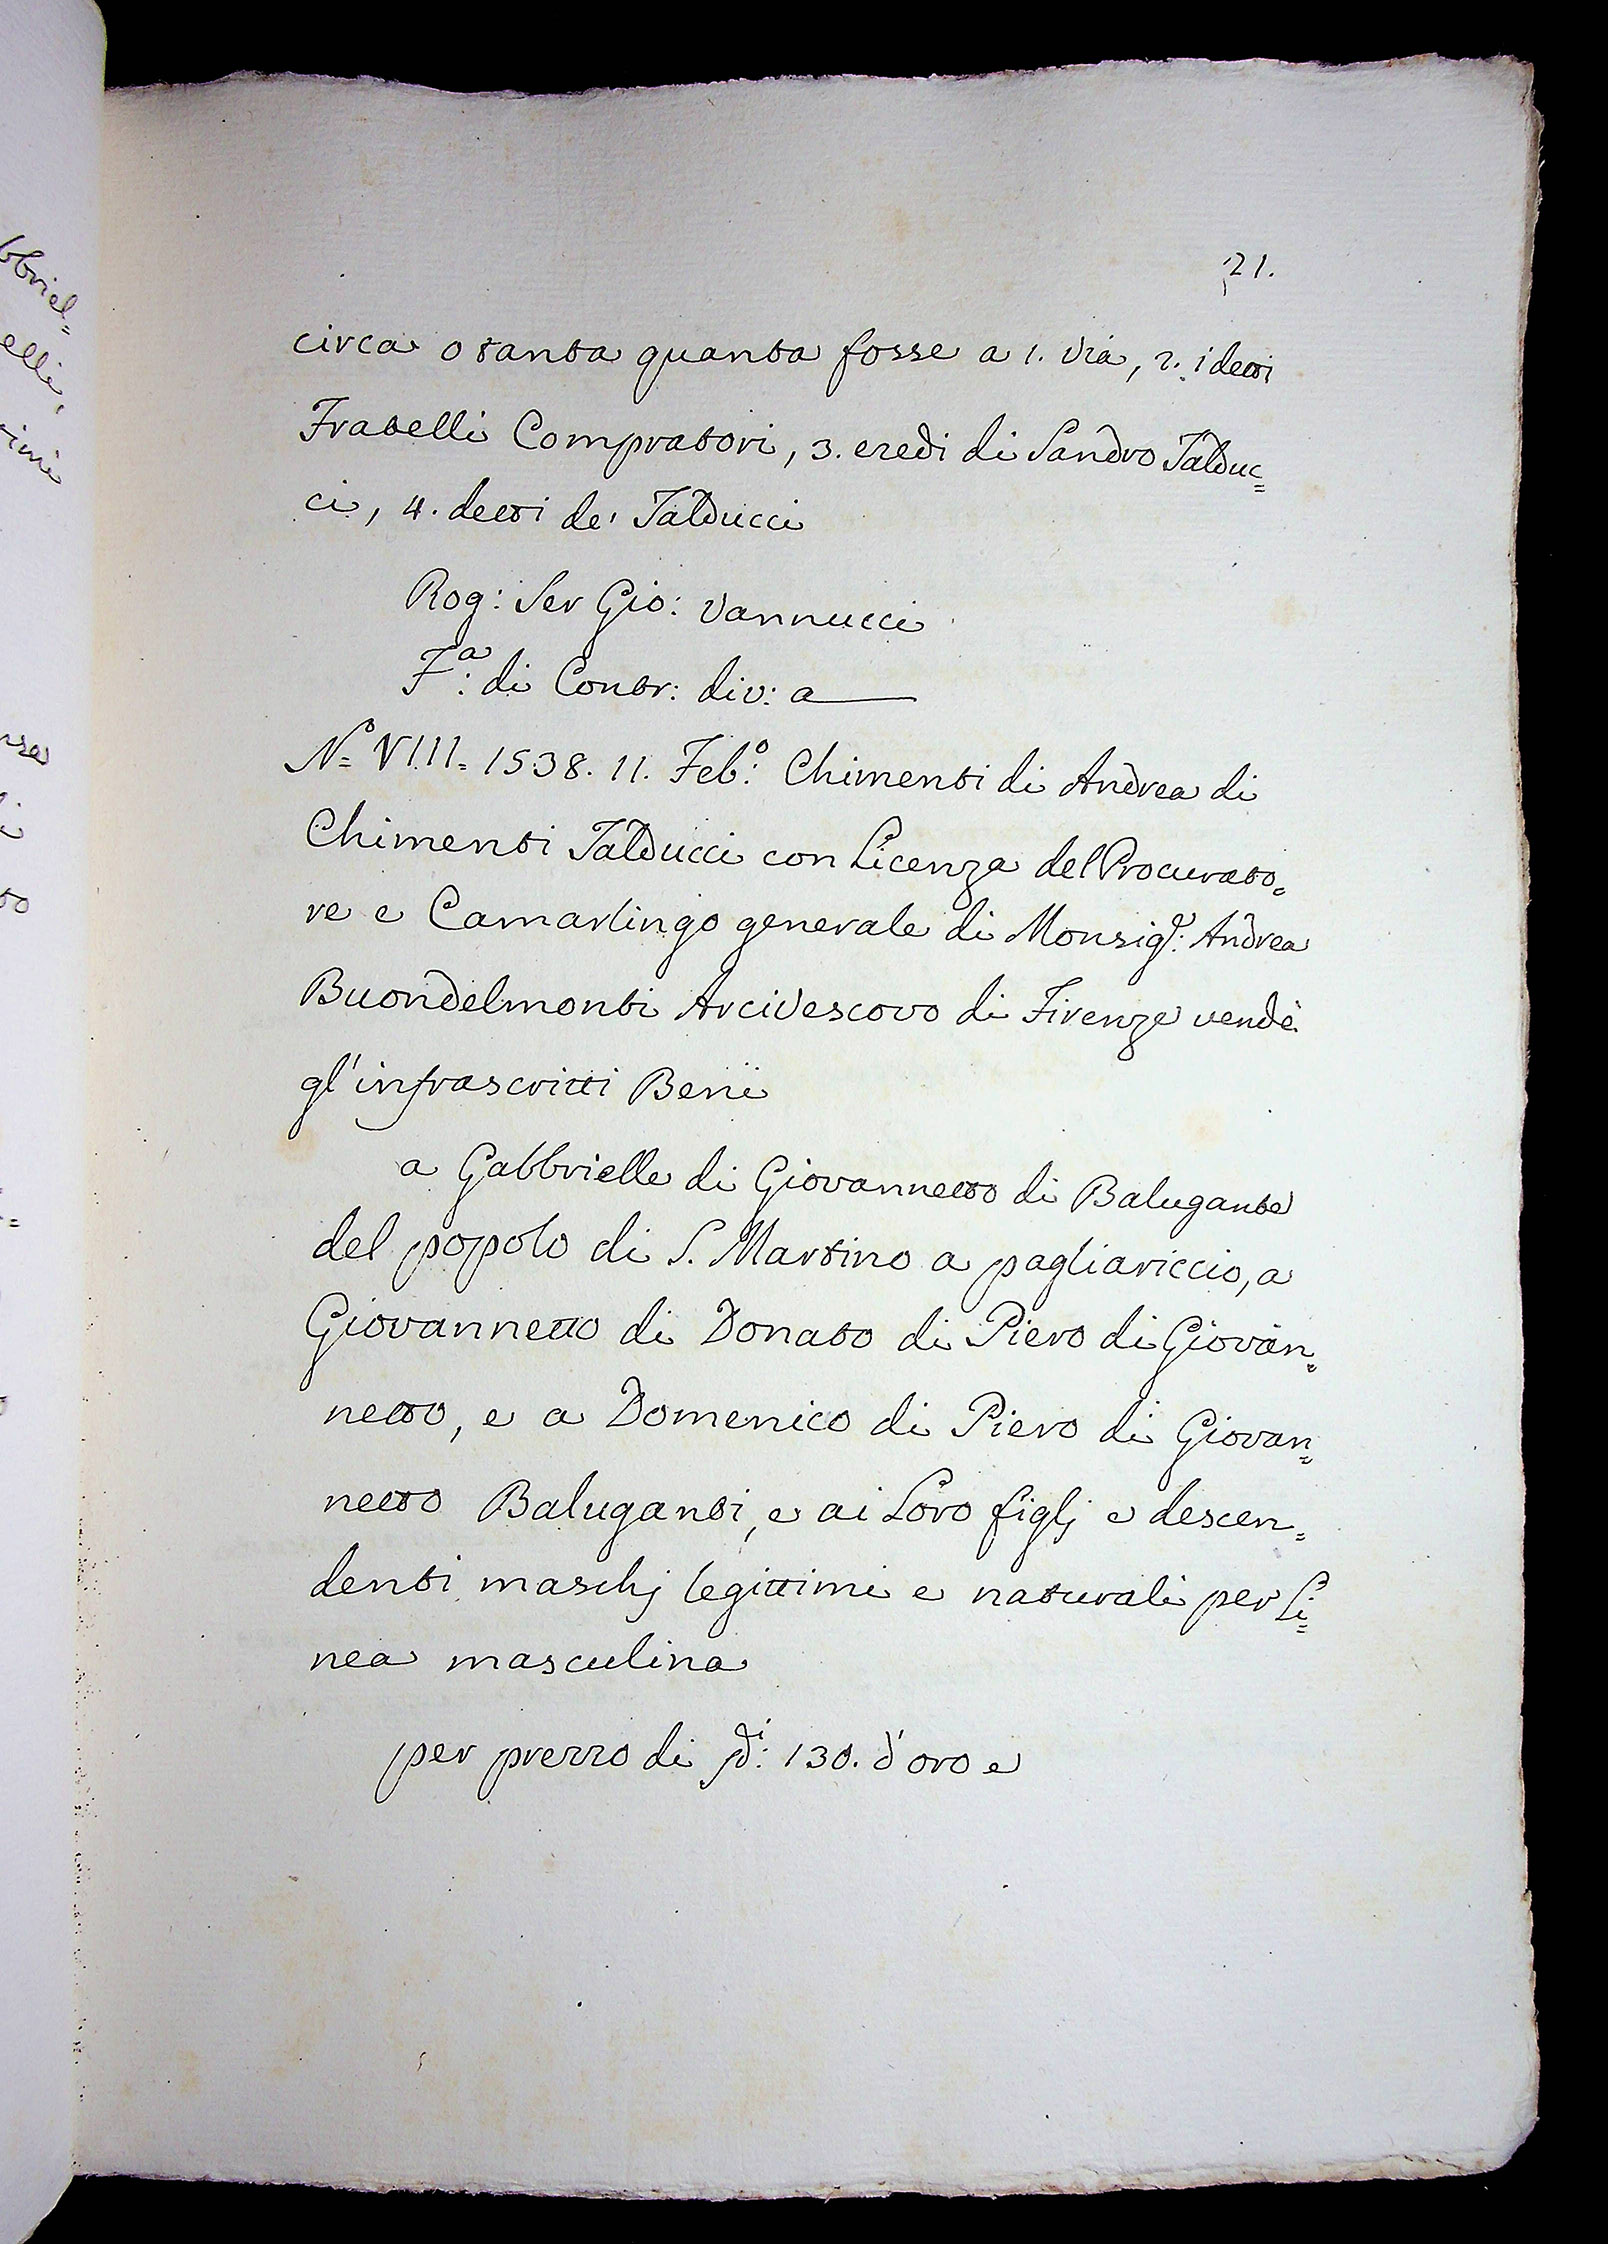 bbriel=
elli,
timi
nza
to
21.
circa o tanta quanta fosse a 1. via, 2. i detti
Fratelli Compratori, 3. eredi di Sandro Talduc=
ci, 4. detti de' Talducci
Rog: Ser Gio: Vannucci
Fª: di Contr: div: a
Nº= VIII= 1538. 11. Febº: Chimenti di Andrea di
Chimenti Talducci con Licenza del Procurato=
re e Camarlingo generale di Monsigʳ: Andrea
Buondelmonti Arcivescovo di Firenze vendè
gl'infrascritti Beni
a Gabbrielle di Giovannetto di Balugante
del popolo di S. Martino a pagliariccio, a
Giovannetto di Donato di Piero di Giovan=
netto, e a Domenico di Piero di Giovan=
netto Baluganti, e ai Loro figlj e descen=
denti maschj legittimi e naturali per Li=
nea masculina
per prezzo di 130. d'oro e